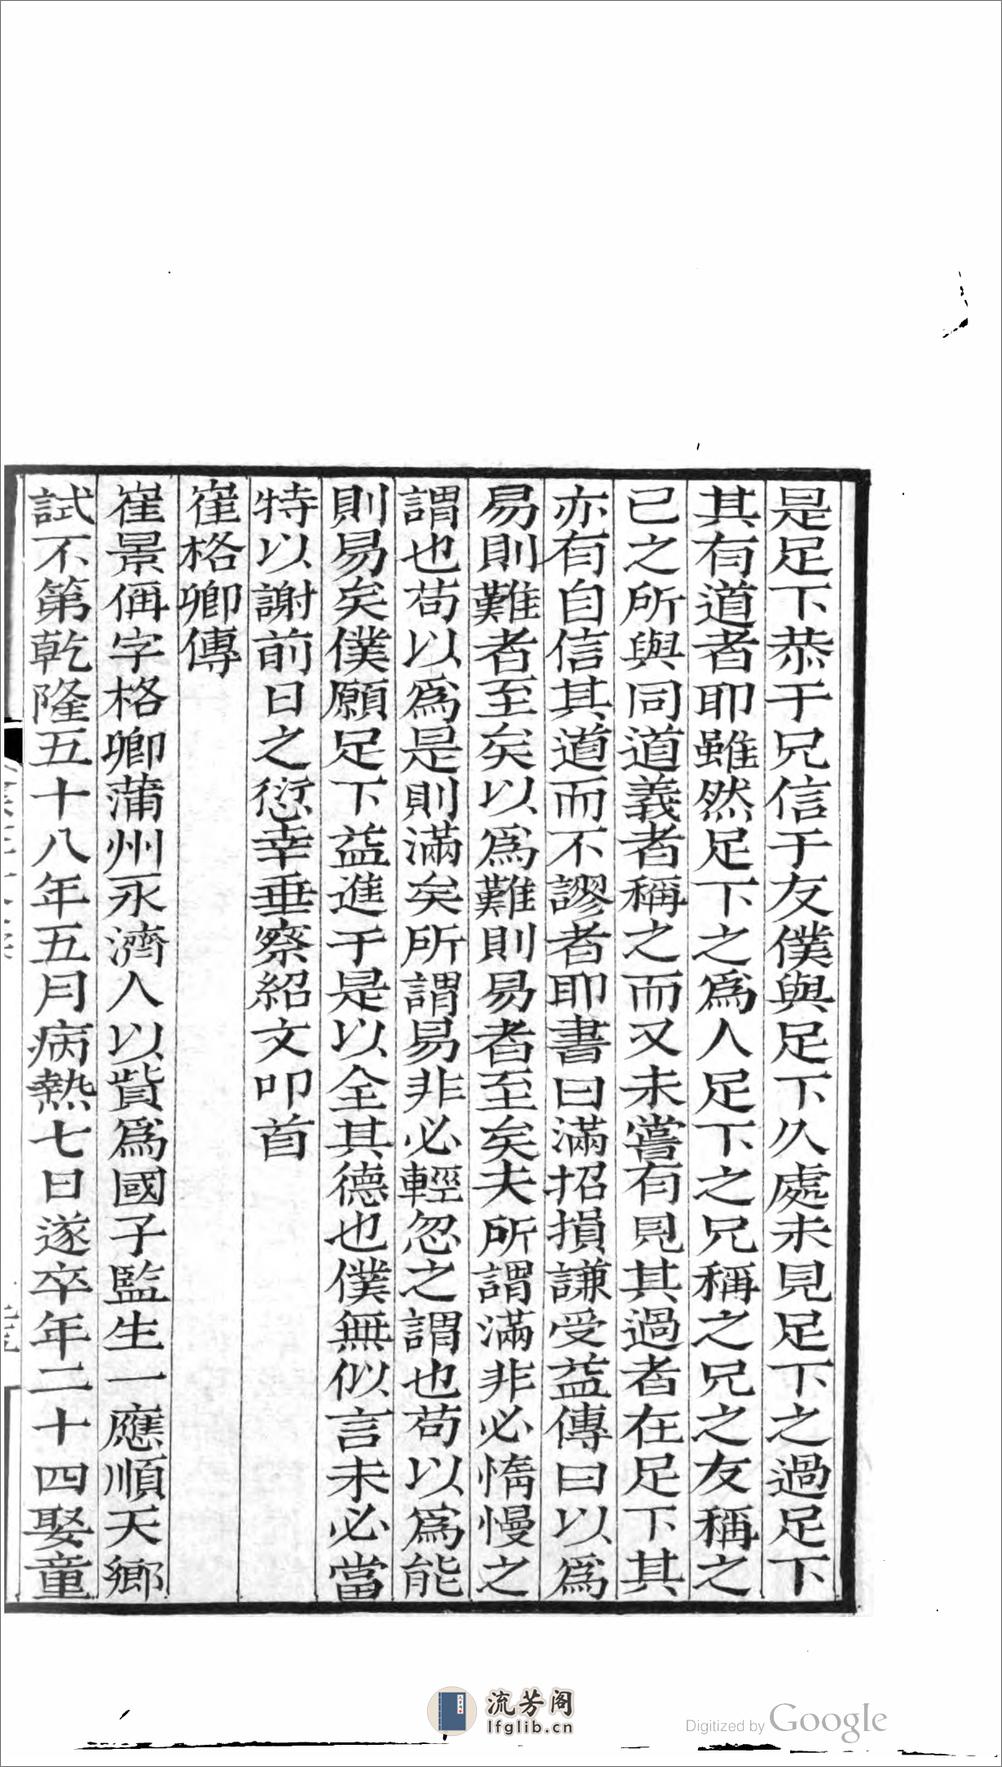 是足下恭于兄信于友僕與足下久處未見足下之過足下
其有道者耶雖然足下之爲人足下之兄稱之兄之友稱之
已之所與同道義者稱之而又未嘗有見其過者在足下其
亦有自信其道而不謬者耶書曰滿招損謙受益傳曰以爲
易則難者至矣以爲難則易者至矣夫所謂滿非必惰慢之
謂也苟以爲是則滿矣所謂易非必輕忽之謂也苟以爲能
則易矣僕願足下益進于是以全其德也僕無似言未必當
特以謝前日之愆幸垂察紹文叩首
崔格卿傳
崔景偁字格卿蒲州永濟人以貲爲國子監生一應順天鄉
試不第乾隆五十八年五月病熱七日遂卒年二十四娶童
流芳阁
lfglib.cn
Digitized by Google